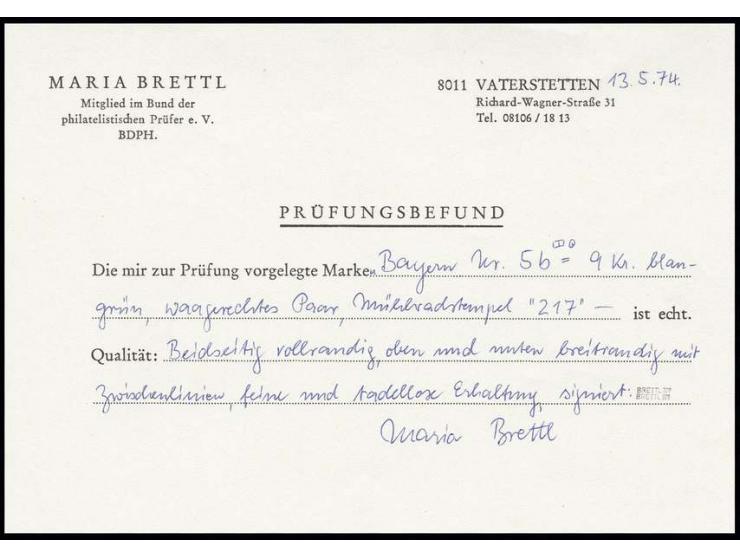 MARIA BRETTL
Mitglied im Bund der
philatelistischen Prüfer e. V.
BDPH.
8011 VATERSTETTEN 13.5.74.
Richard-Wagner-Straße 31
Tel. 08106 / 18 13
PRÜFUNGSBEFUND
Die mir zur Prüfung vorgelegte Marken Bayern Nr. 5b = 9 Kr. blau-
grün, waagerechtes Paar, Mühlradstempel "217" — ist echt.
Qualität: Beidseitig vollrandig, oben und unten breitrandig mit
Zwischenlinien, feine und tadellose Erhaltung, signiert: BRETTL
Maria Brettl